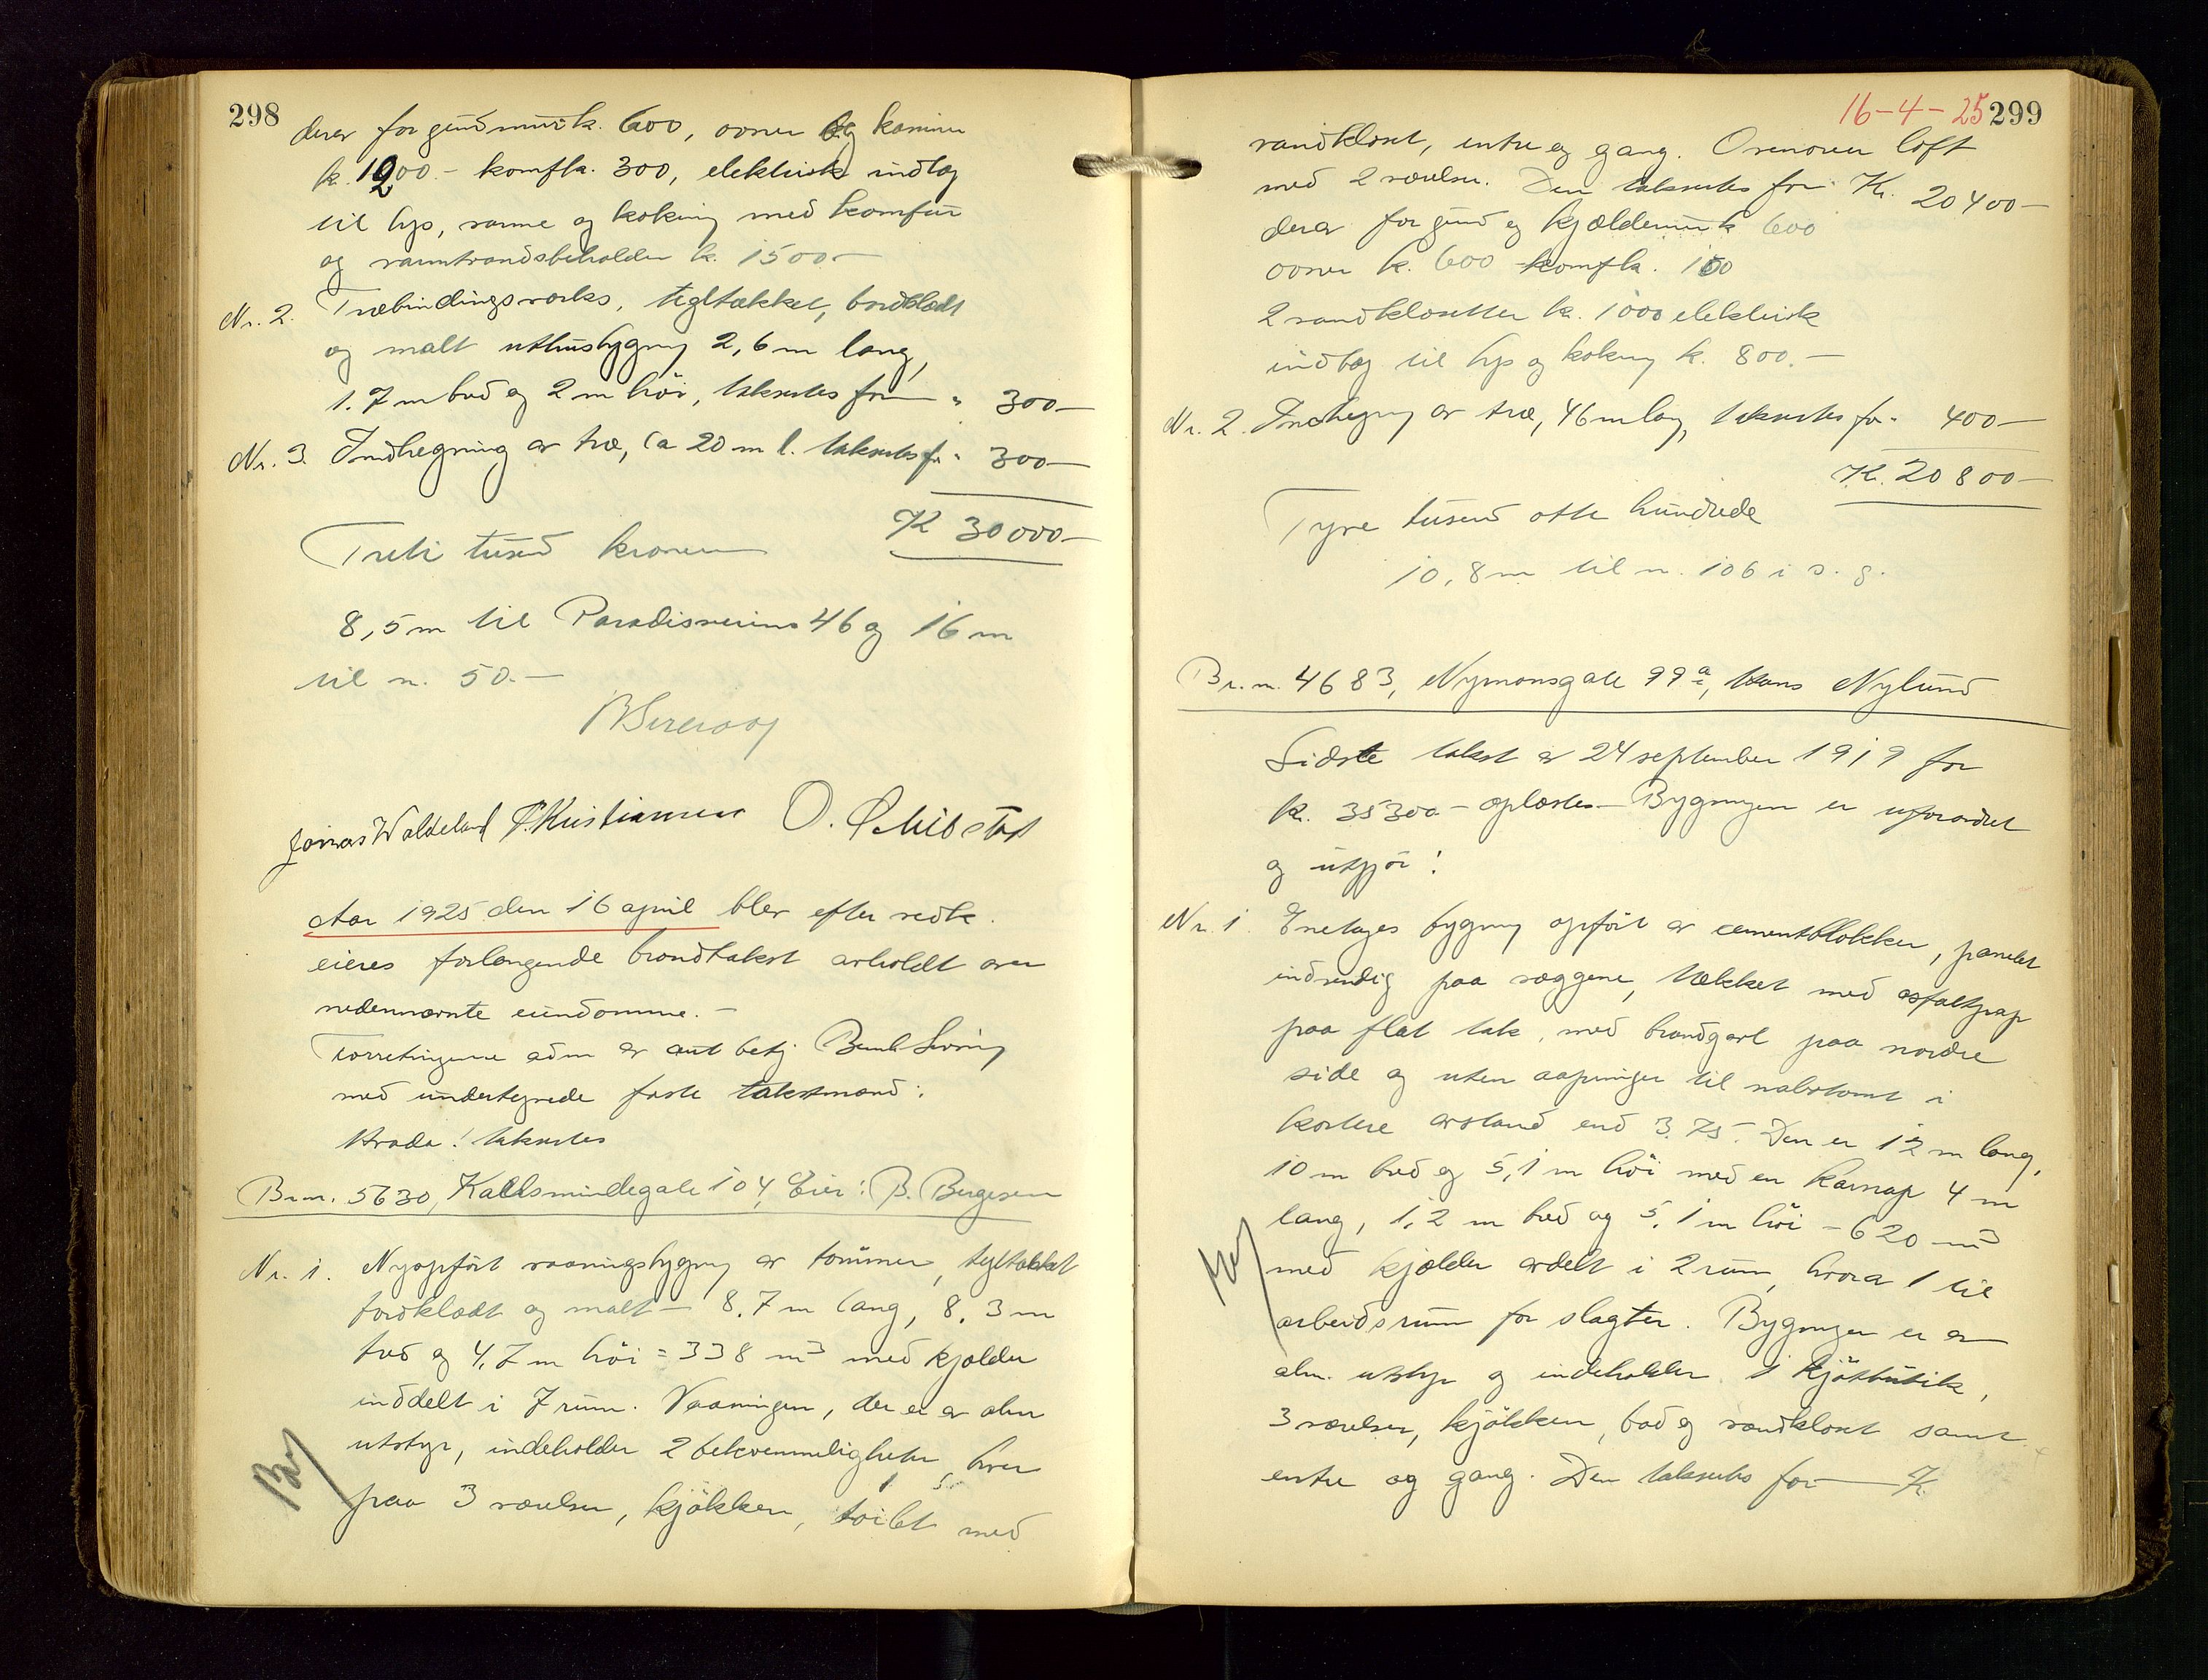 298
derav for grundmurk. 600, ovner og kaminer
k. 1200.- komfk. 300, elektrisk indlæg
til lys, varme og koking med komfur
og varmtvandsbeholder k. 1500.-
Nr. 2. Træbindingsverks, tegltækket, bordklædt
og malt uthusbygning 2,6 m lang,
1.7 m bred og 2 m høi, takseres for " 300-
Nr. 3. Indhegning av træ, ca 20 m l. takseres f. " 300-
K 30000-
Treti tusend kroner
8,5 m til Paradisveiens 46 og 16 m
til n. 50.-
Jonas Waldeland Kristiansen O. Schibstad
Aar 1925 den 16 april blev efter vedk.
eieres forlangende brandtakst avholdt over
nedennævnte eiendomme.-
Forretningerne adm av aut betj.
med undertegnede faste takstmænd:
Hvoda! takseres
Br.nr. 5630, Kallsmindegate 104, Eier: B. Bergesen
Nr. 1. Nyopført vaaningsbygning av tømmer, tegltækket
bordklædt og malt - 8.7 m lang, 8.3 m
bred og 4,7 m høi = 338 m3 med kjælder
inddelt i 7 rum. Vaaningen, der er av alm
utstyr, indeholder 2 bekvemmeligheter, hver
paa 3 værelser, kjøkken, toilet med
16-4-25 299
vandkloset, entre og gang. Ovenover loft
med 2 værelser. Den takseres for Kr. 20400-
derav for grund og kjældermurk 600
ovner k. 600 komfk. 100
2 vandklosetter k. 1000 elektrisk
indlæg til lys og koking k. 800.-
Nr. 2. Indhegning av træ, 46 m lang, takseres for " 400-
K. 20800-
Tyve tusend otte hundrede
10,8 m til n. 106 i s. g.
Br.nr. 4683, Nymansgate 99a, Hans Nylund
Sidste takst av 24 september 1919 for
k. 35300- oplæstes- Bygningen er uforandret
og utgjør:
Nr. 1. Enetages bygning opført av cementblokker, panelet
indvendig paa væggene, tækket med asfaltpap
paa flat tak, med brandgavl paa nordre
side og uten aapninger til nabotomt i
kortere avstand end 3.75. Den er 12 m lang,
10 m bred og 5,1 m høi med en karnap 4 m
lang, 1,2 m bred og 5,1 m høi - 620 m3
med kjælder avdelt i 2 rum, hvorav 1 til
arbeidsrum for slagter. Bygningen er av
alm. utstyr og indeholder 1 kjøtbutik,
3 værelser, kjøkken, bad og vandkloset samt
entre og gang. Den takseres for - K.